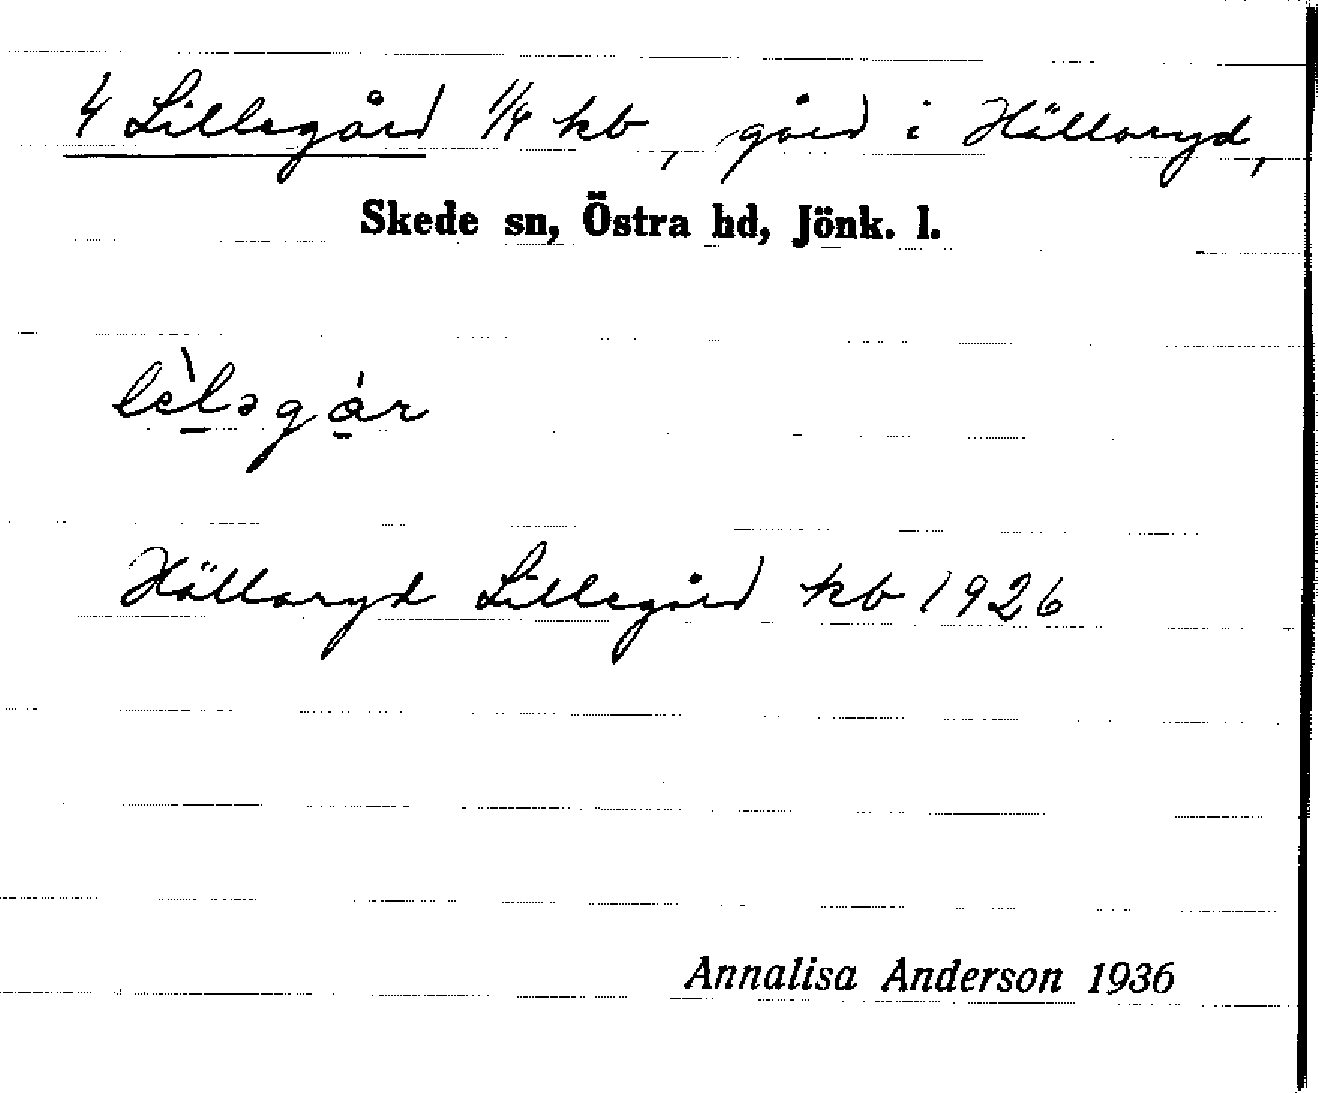 4 Lillegård 1/8 kb, gård i Hällaryd,
Skede sn, Östra hd, Jönk. l.
lèləgár
Hällaryd Lillegård kb 1926
Annalisa Anderson 1936